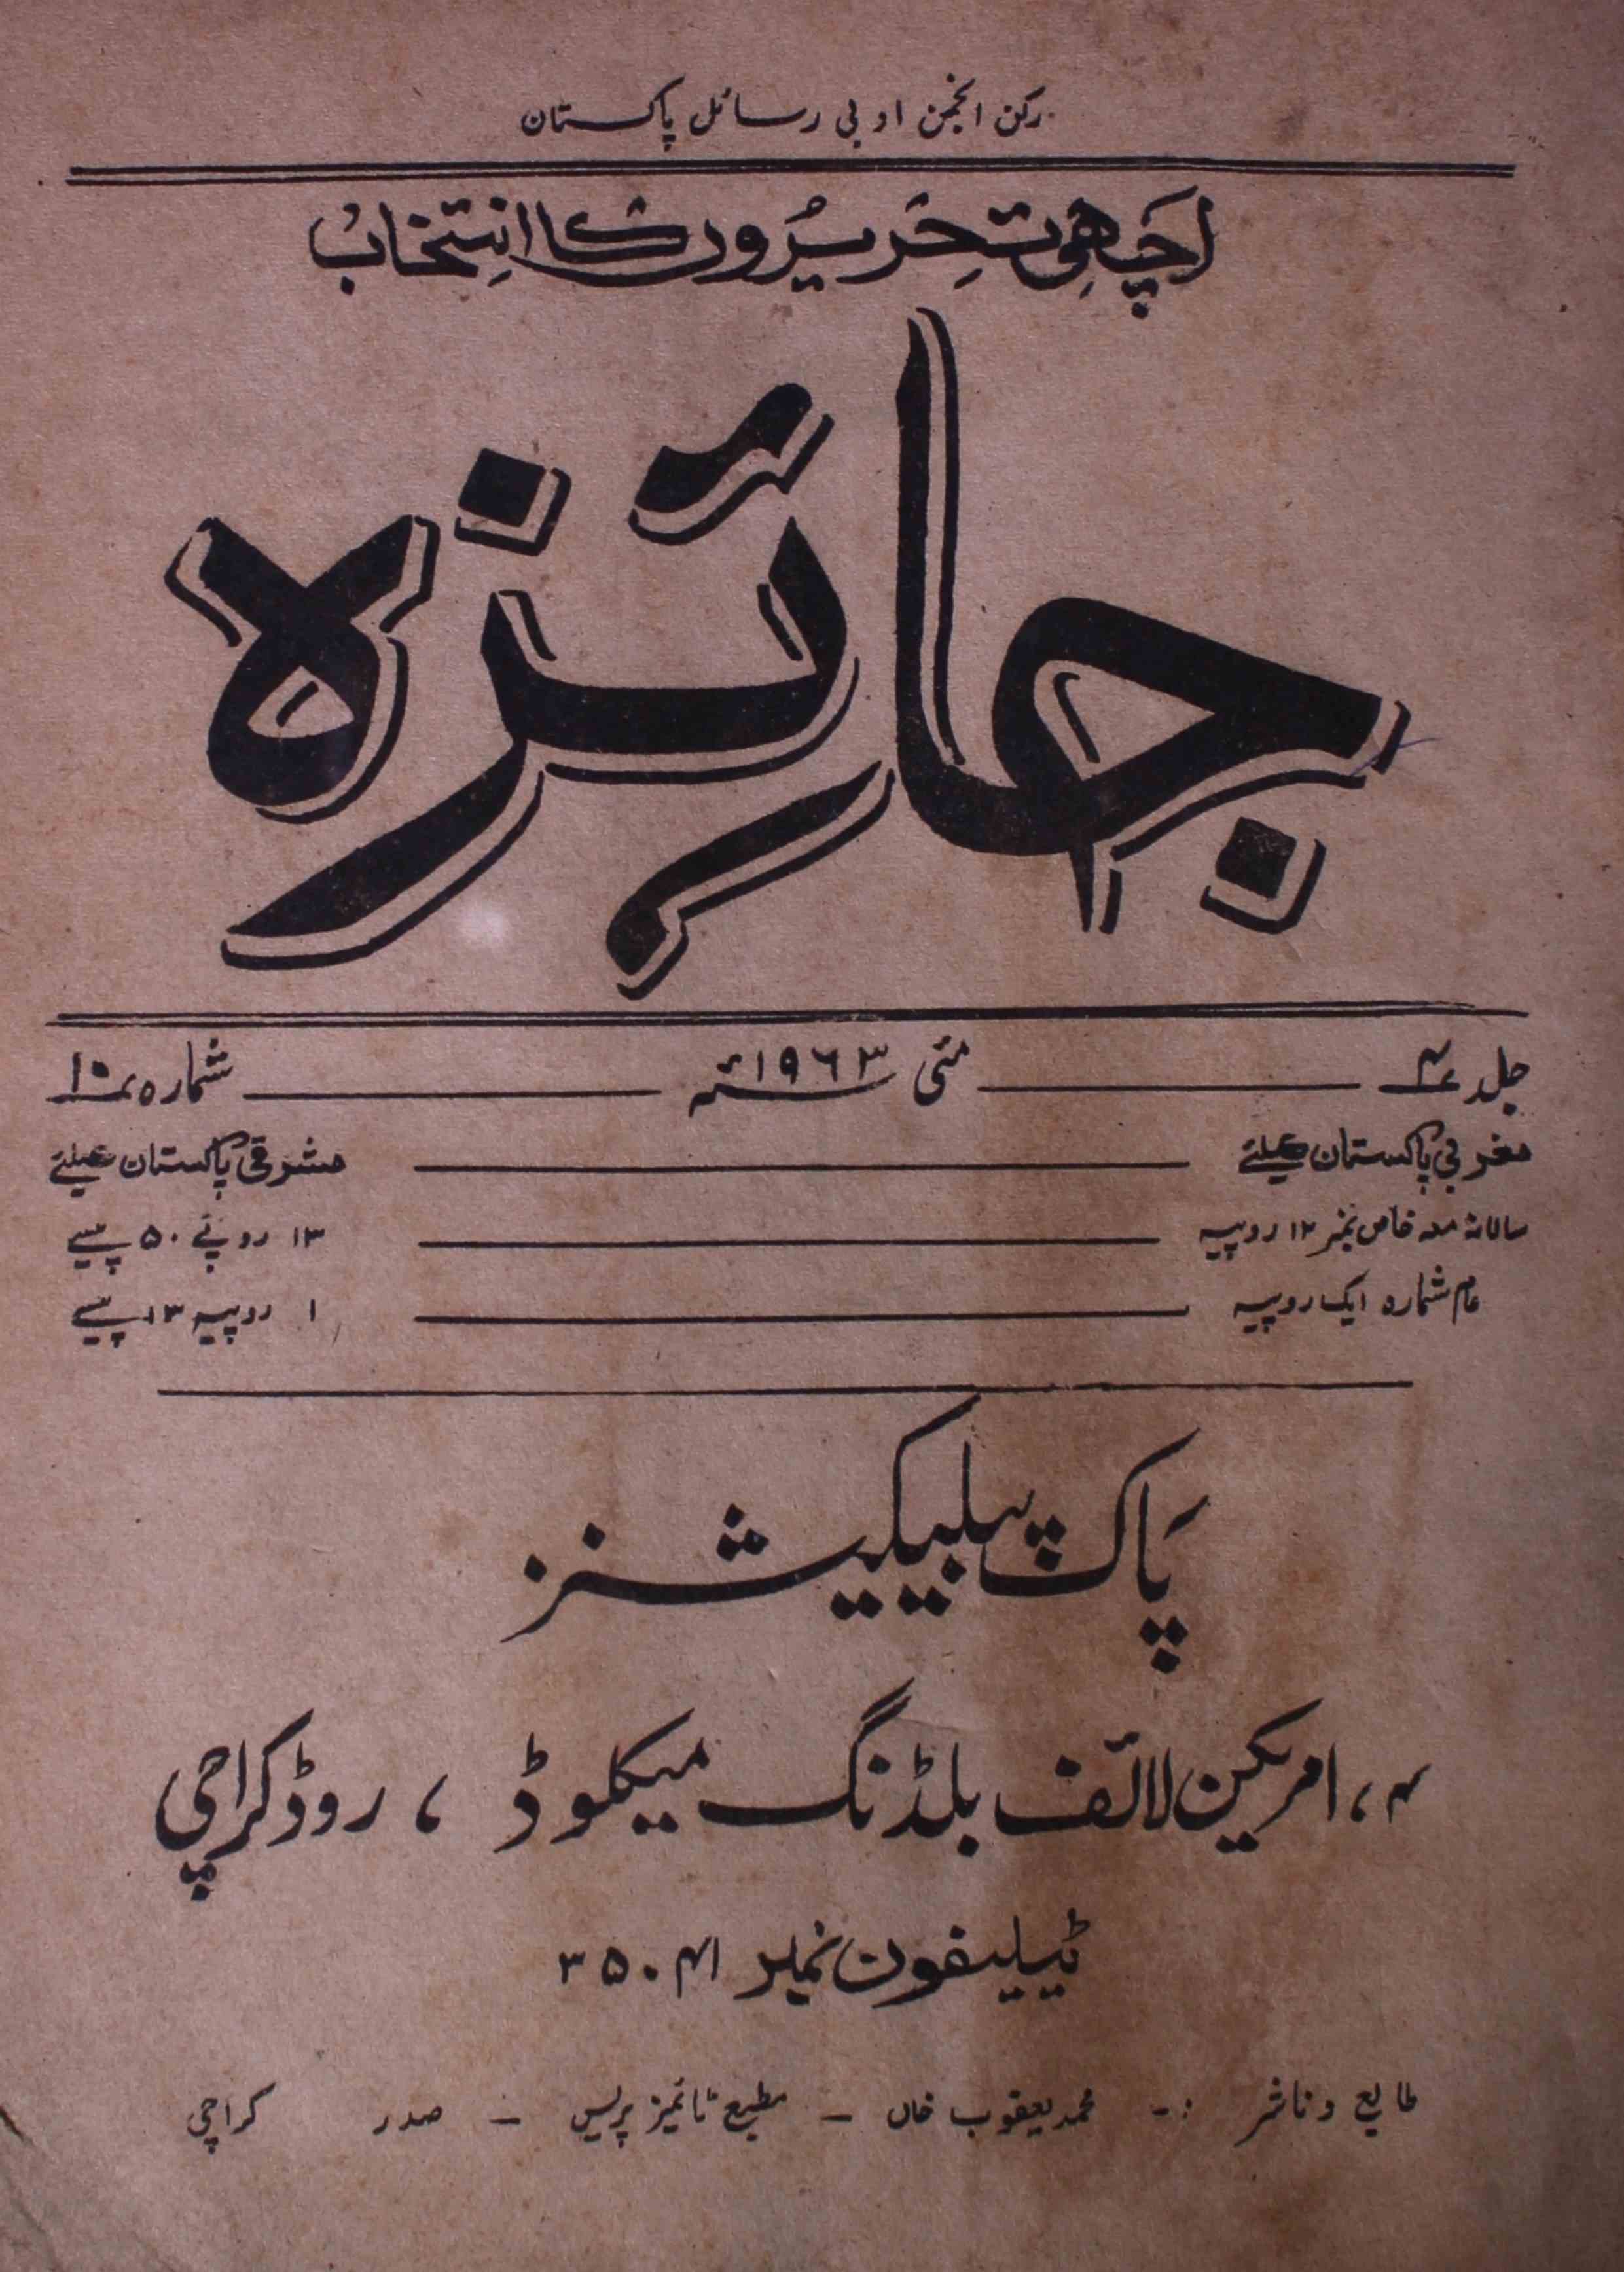 رکن انجمن ادبی رسائل پاکستان
اچھی تحریروں کا انتخاب
جائزہ
جلد ۴ مئی ۱۹۶۳ء شمارہ ۱۰
مغربی پاکستان کیلئے مشرقی پاکستان کیلئے
سالانہ معہ خاص نمبر ۱۲ روپیہ ۱۳ روپے ۵۰ پیسے
عام شمارہ ایک روپیہ ۱ روپیہ ۱۳ پیسے
پاک پبلیکیشنز
۴، امریکن لائف بلڈنگ میکلوڈ، روڈ کراچی
ٹیلیفون نمبر ۳۵۰۴۱
طابع و ناشر :- محمد یعقوب خاں - مطبع ٹائمز پریس - صدر کراچی